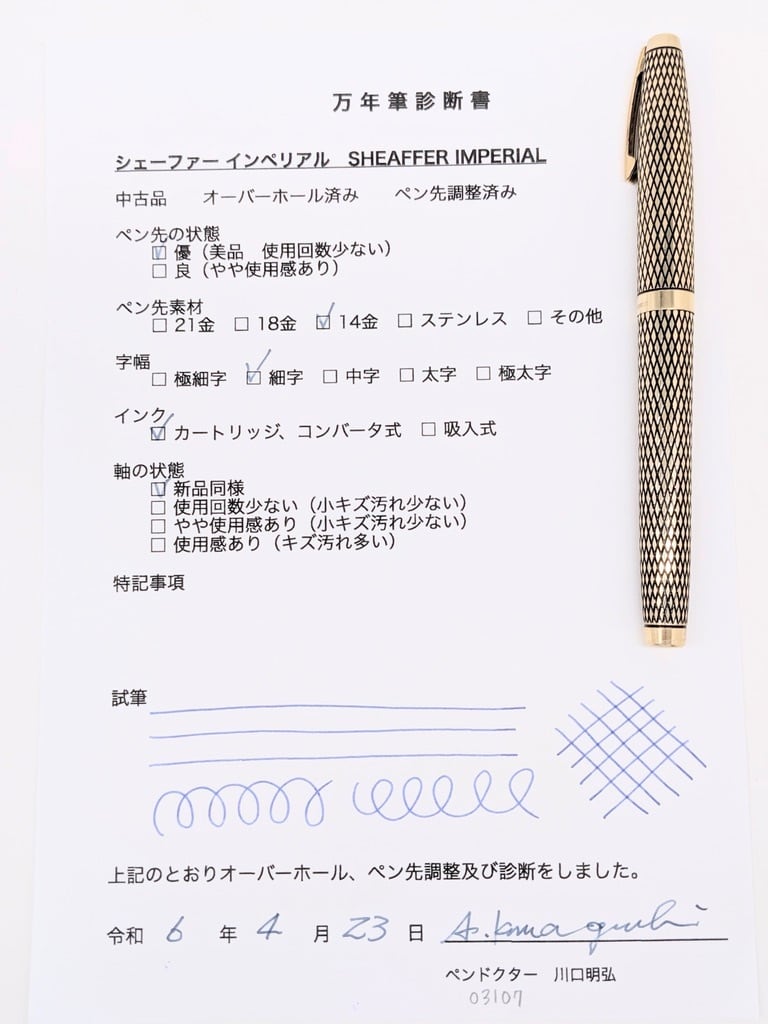 万年筆診断書
シェーファー インペリアル SHEAFFER IMPERIAL
中古品 オーバーホール済み ペン先調整済み
ペン先の状態
☑ 優（美品 使用回数少ない）
□ 良（やや使用感あり）
ペン先素材
□ 21金 □ 18金 ☑ 14金 □ ステンレス □ その他
字幅
□ 極細字 ☑ 細字 □ 中字 □ 太字 □ 極太字
インク
☑ カートリッジ、コンバータ式 □ 吸入式
軸の状態
☑ 新品同様
□ 使用回数少ない（小キズ汚れ少ない）
□ やや使用感あり（小キズ汚れ少ない）
□ 使用感あり（キズ汚れ多い）
特記事項
試筆
上記のとおりオーバーホール、ペン先調整及び診断をしました。
令和 6 年 4 月 23 日 A.Kawaguchi
ペンドクター 川口明弘
03107